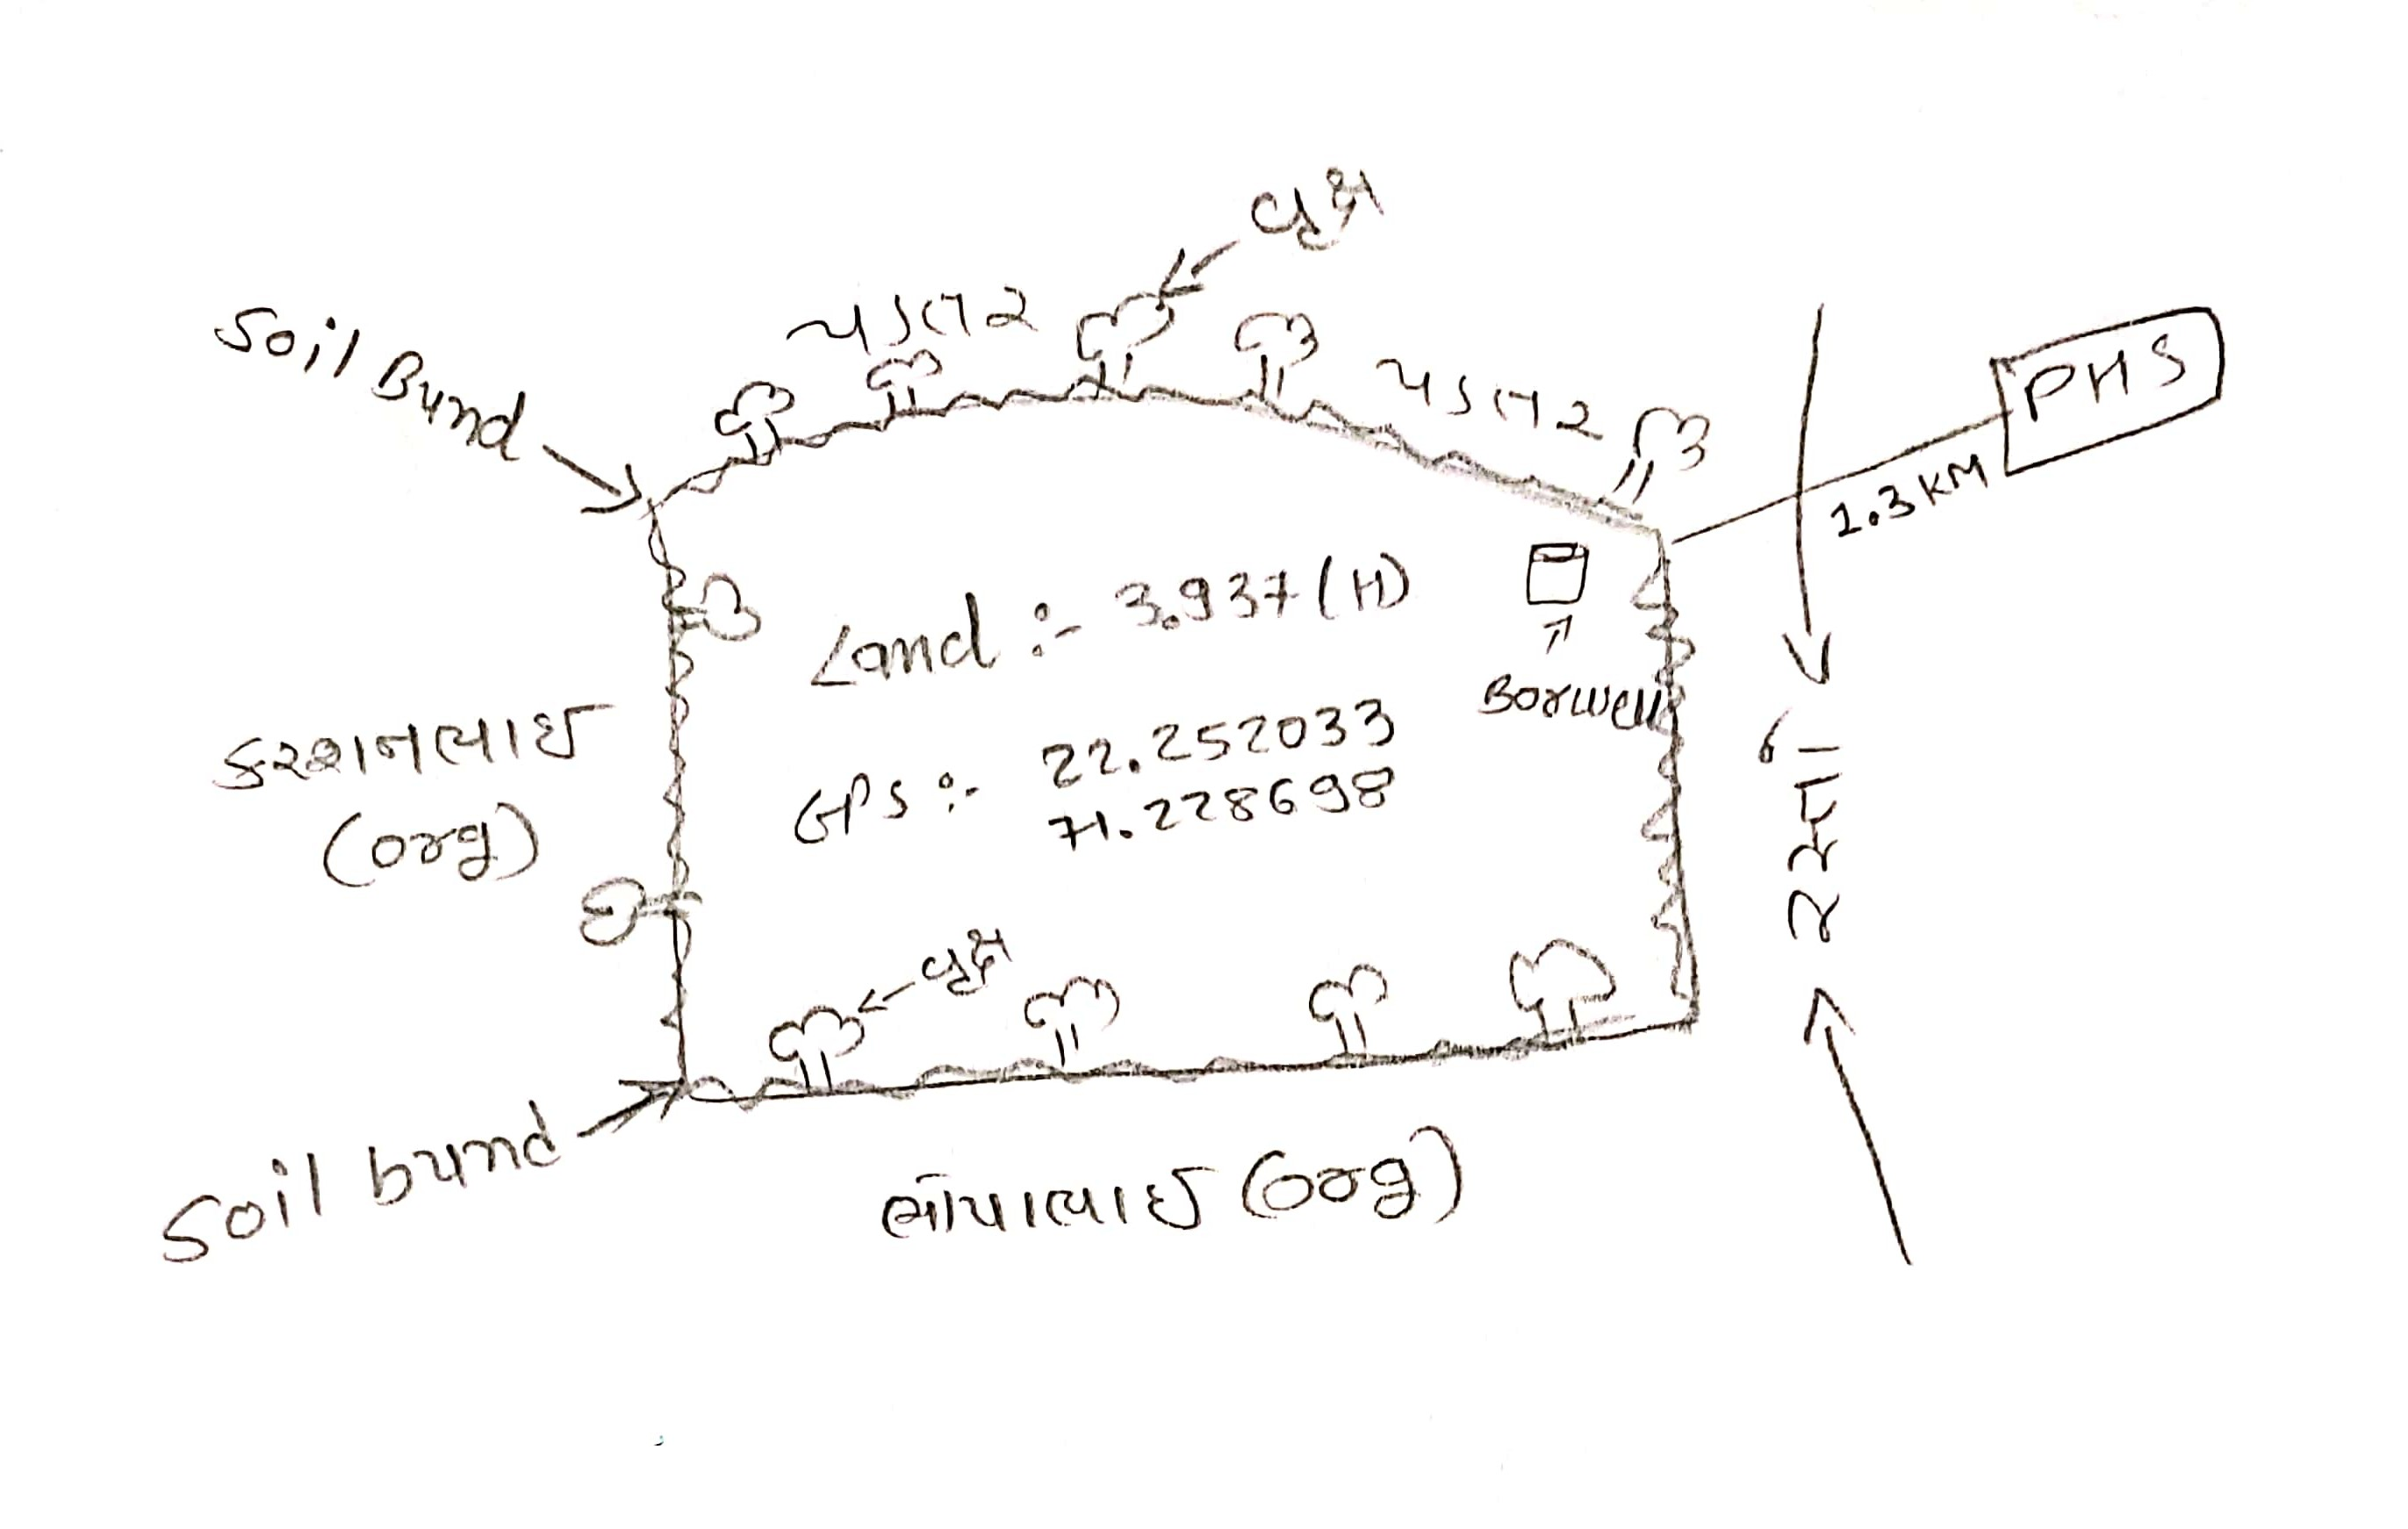 વૃક્ષ
પડતર
Soil Bund
પડતર
PHS
1.3 KM
Land :- 3.937 (H)
Borwell
કરશનભાઈ
(org)
GPS :- 22.252033
71.228698
રસ્તો
વૃક્ષ
Soil bund
ભોપાભાઈ (org)